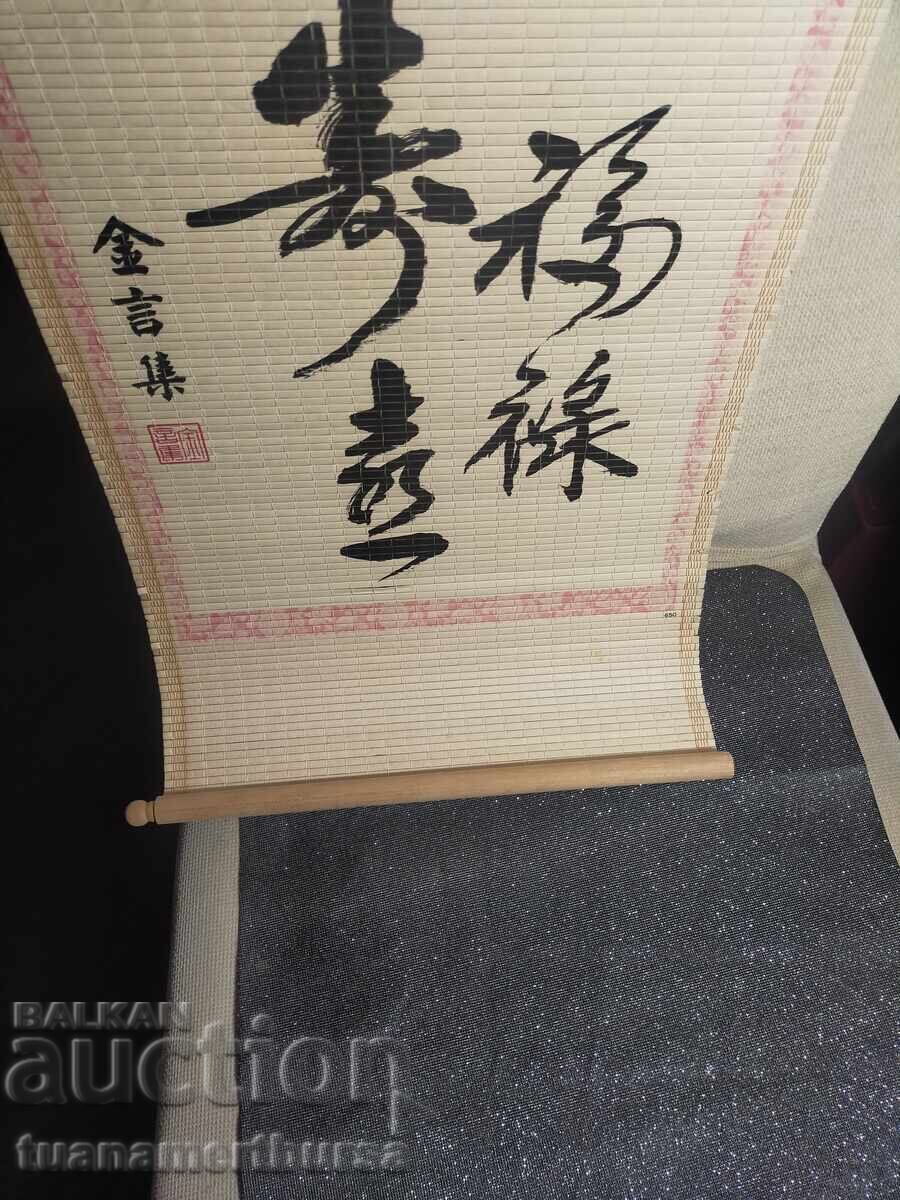 福禄
寿喜
金言集
650
BALKAN
auction
tuanamerthursa